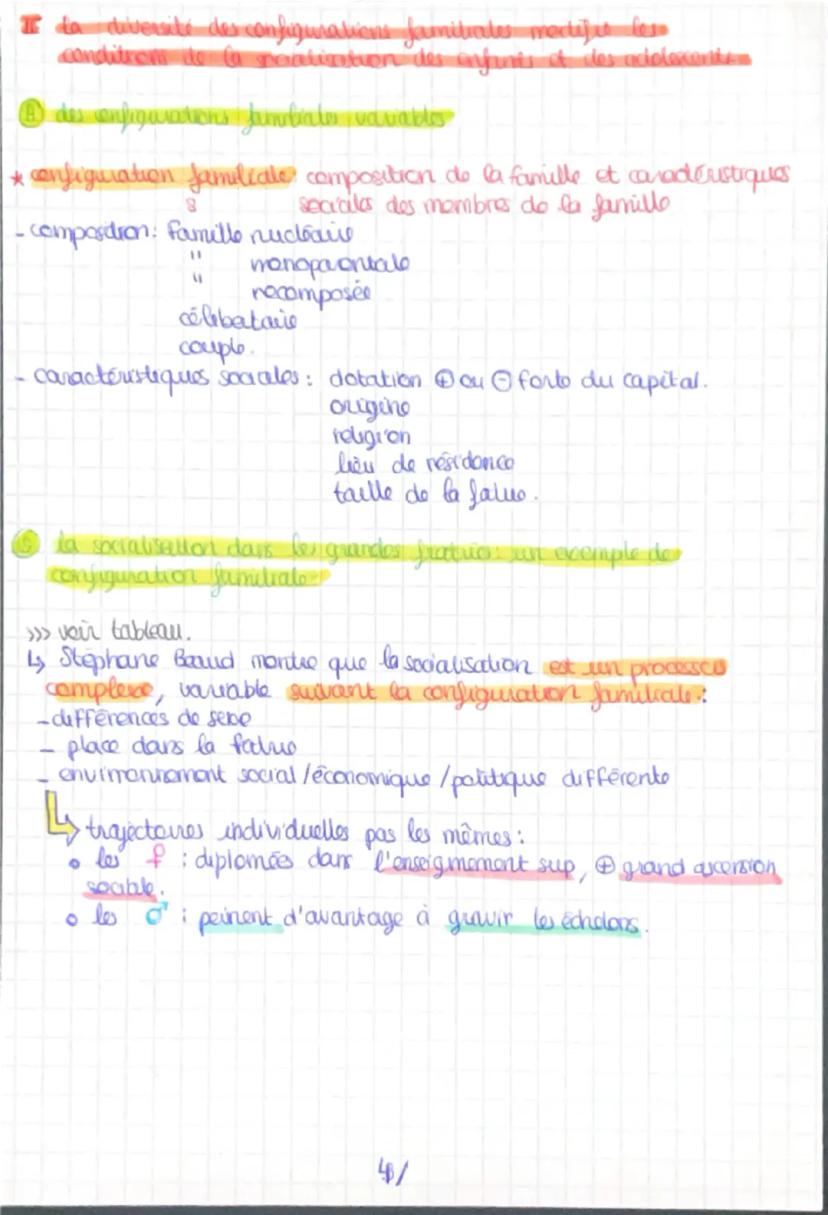 II la diversité des configurations familiales modifie les
conditions de la socialisation des enfants et des adolescents
A des configurations familiales variables
* configuration familiale: composition de la famille et caractéristiques
sociales des membres de la famille
- composition: famille nucléaire
" monoparentale
" recomposée
célibataire
couple.
- caractéristiques sociales: dotation ⊕ ou ⊖ forte du capital.
origine
religion
lieu de résidence
taille de la
la socialisation dans les grandes fratries: un exemple de
configuration familiale
>>> voir tableau.
↳ Stéphane Beaud montre que la socialisation est un processus
complexe, variable suivant la configuration familiale:
- différences de sexe
- place dans la
- environnement social/économique/politique différente
↳ trajectoires individuelles pas les mêmes:
• les ♀ : diplomées dans l'enseignement sup, ⊕ grand ascension
sociable.
• les ♂ : peinent d'avantage à gravir les échelons.